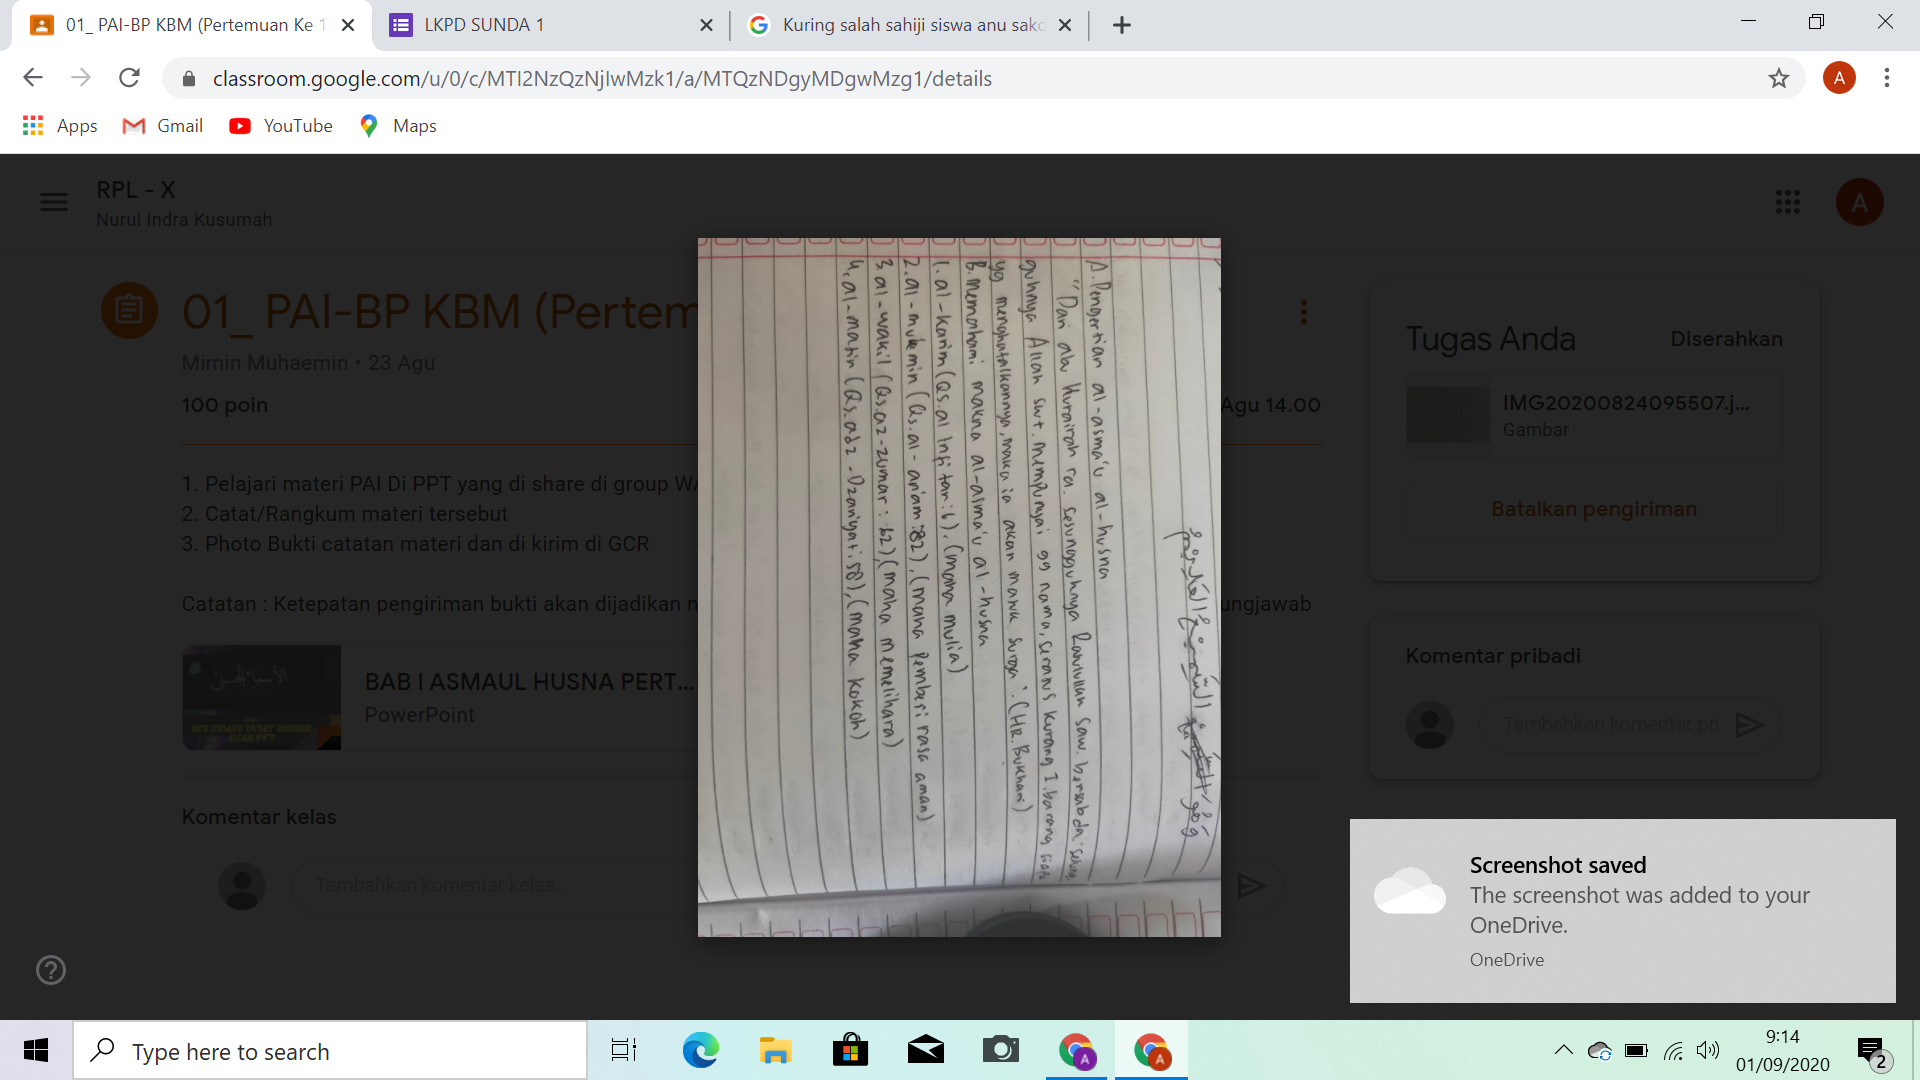 01_ PAI-BP KBM (Pertemuan Ke 1
LKPD SUNDA 1
Kuring salah sahiji siswa anu sako
classroom.google.com/u/0/c/MTI2NzQzNjIwMzk1/a/MTQzNDgyMDgwMzg1/details
A
Apps
Gmail
YouTube
Maps
RPL - X
Nurul Indra Kusumah
A
01_ PAI-BP KBM (Pertem
Mimin Muhaemin • 23 Agu
100 poin
Agu 14.00
1. Pelajari materi PAI Di PPT yang di share di group WA
2. Catat/Rangkum materi tersebut
3. Photo Bukti catatan materi dan di kirim di GCR
Catatan : Ketepatan pengiriman bukti akan dijadikan n
ungjawab
BAB I ASMAUL HUSNA PERT...
PowerPoint
Komentar kelas
Tambahkan komentar kelas...
A. Pengertian al-asma'u al-husna
"Dari abu Hurairah ra. sesungguhnya Rasulullah saw. bersabda: sesung
guhnya Allah swt. mempunyai 99 nama, seratus kurang 1. barang siapa
yg menghafalkannya, maka ia akan masuk surga". (HR. Bukhari)
B. Memahami makna al-asma'u al-husna
1. al-karim (Qs. al infitar: 6), (maha mulia)
2. al-mukmin (Qs. al-an'am: 82), (maha pemberi rasa aman)
3. al-wakil (Qs. az-zumar: 62), (maha memelihara)
4. al-matin (Qs. adz-Dzariyat: 58), (maha kokoh)
Tugas Anda
Diserahkan
IMG20200824095507.j...
Gambar
Batalkan pengiriman
Komentar pribadi
Tambahkan komentar pri
Screenshot saved
The screenshot was added to your
OneDrive.
OneDrive
Type here to search
9:14
01/09/2020
2